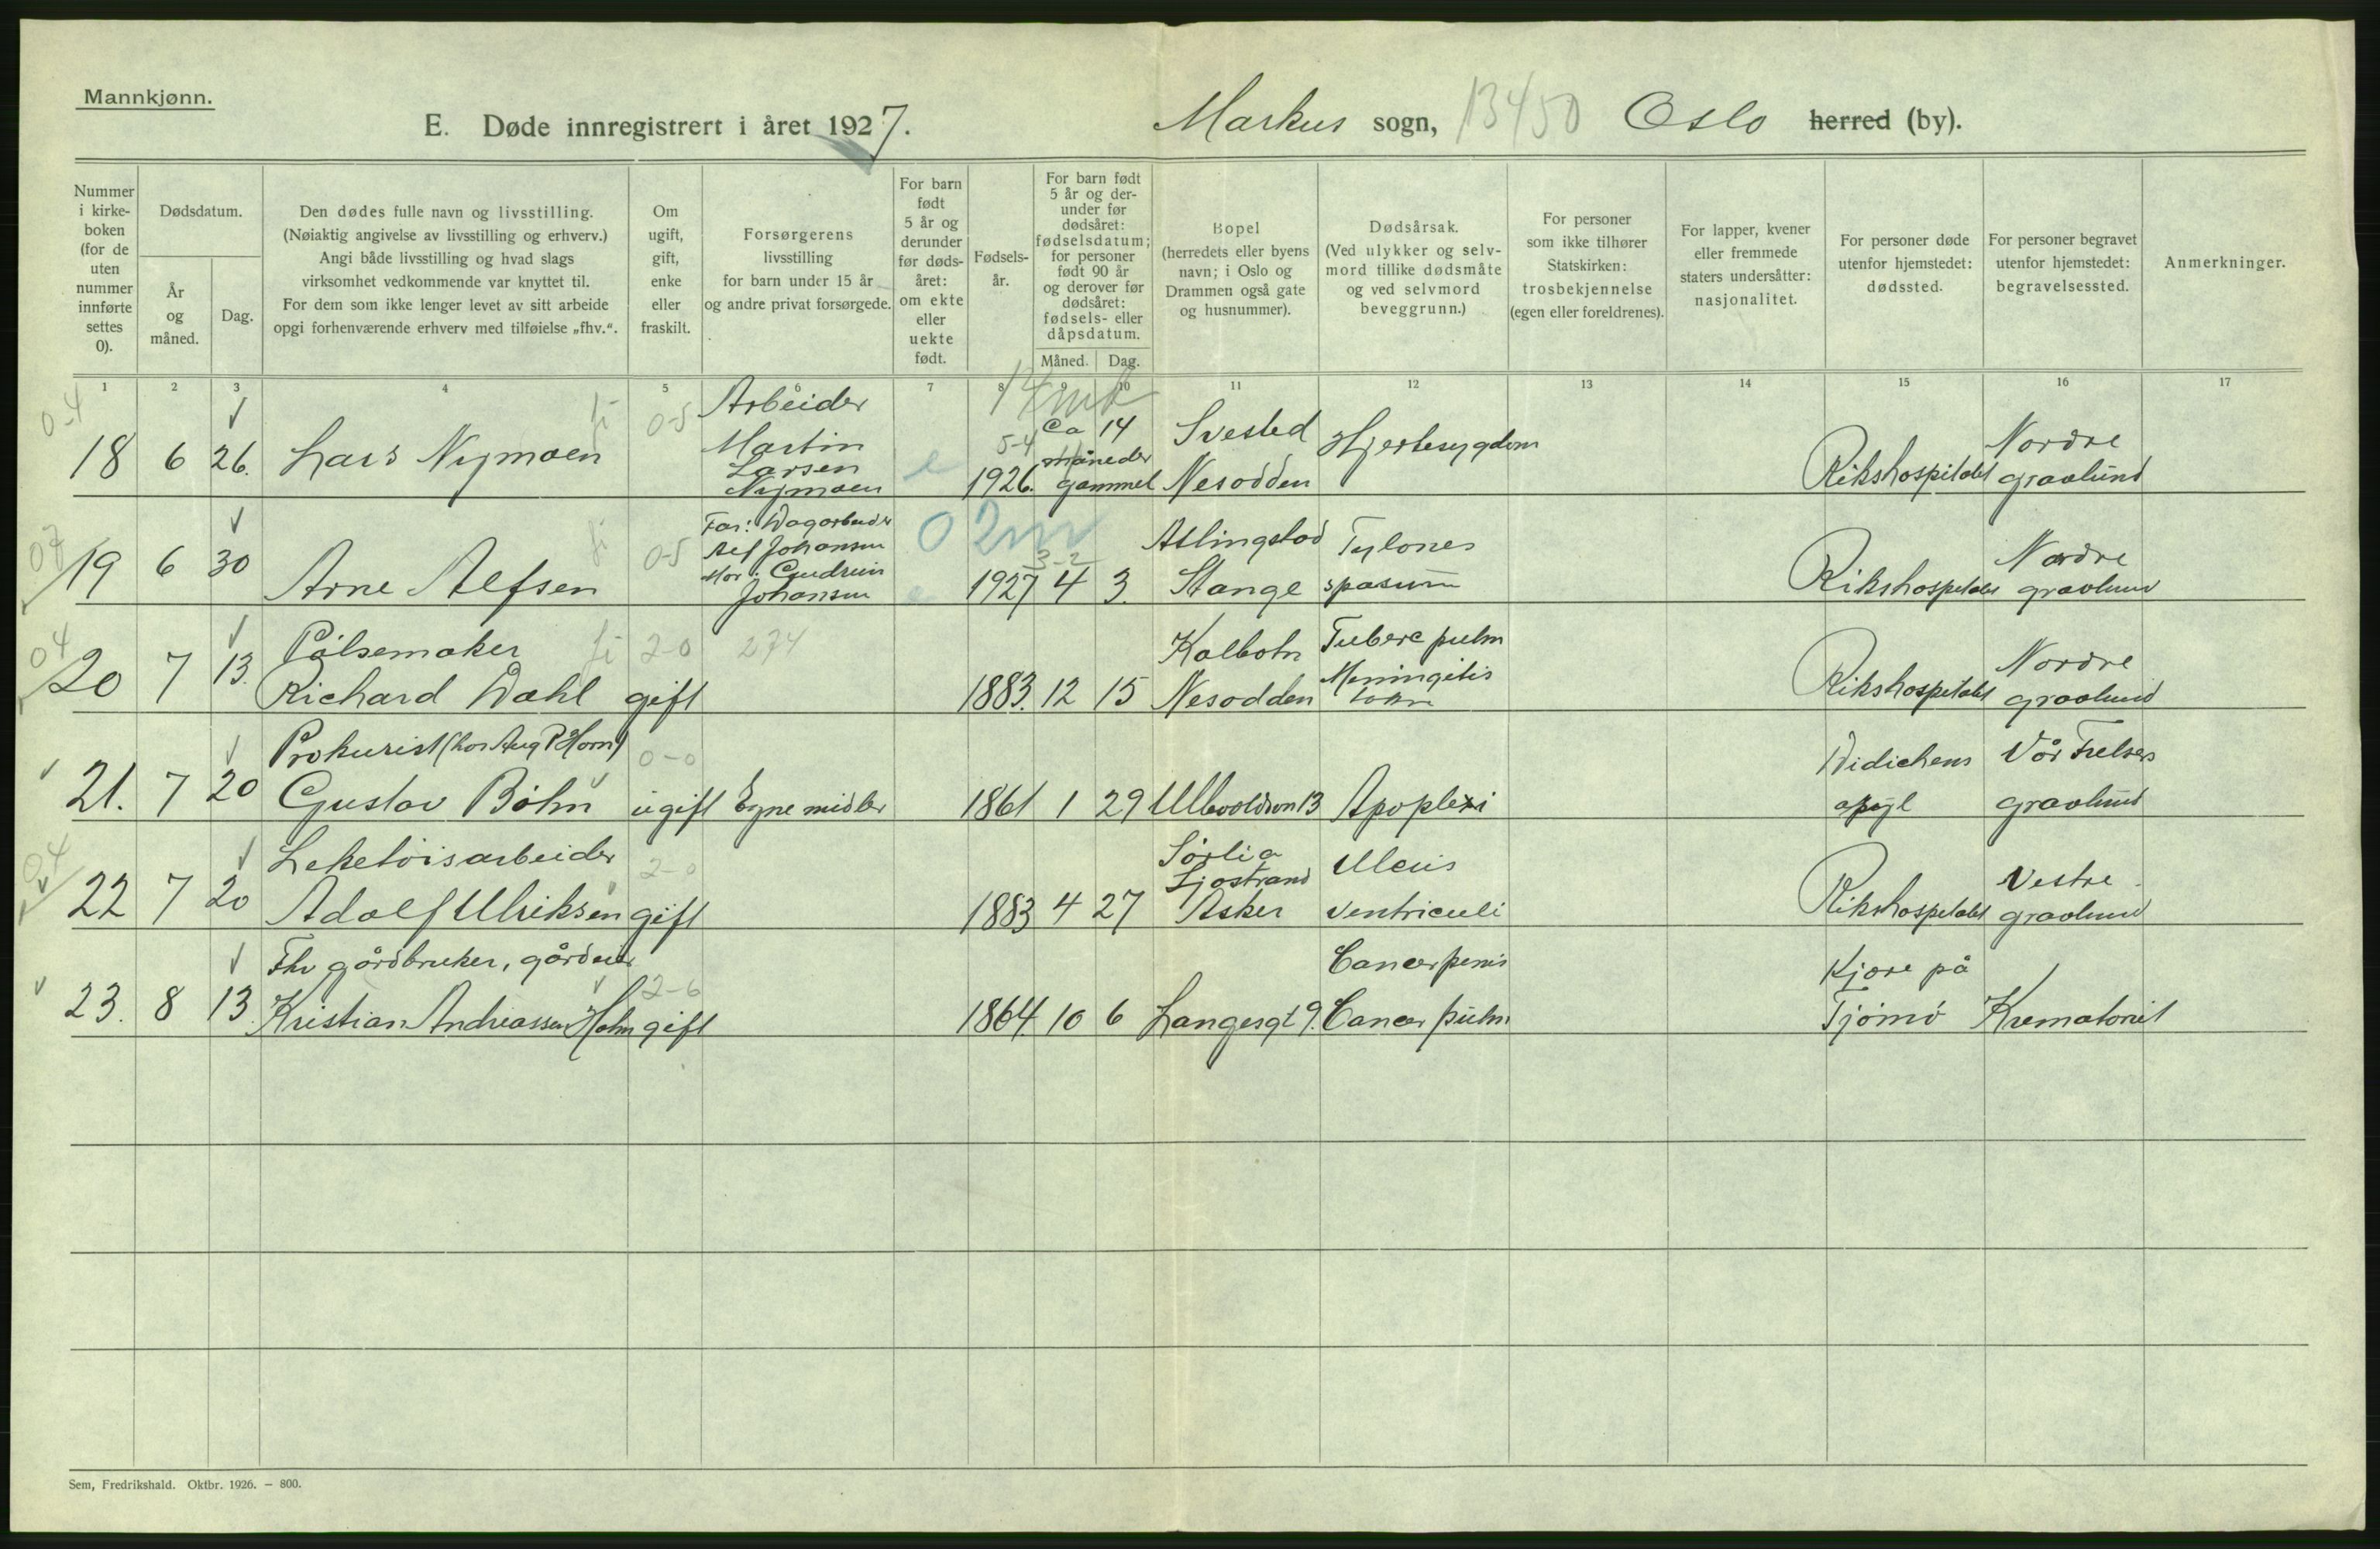 Mannkjønn.
E. Døde innregistrert i året 1927. Markus sogn, 13450 Oslo herred (by).
Nummer i kirke-boken (for de uten nummer innførte settes 0).
Dødsdatum.
År og måned.
Dag.
Den dødes fulle navn og livsstilling.
(Nøiaktig angivelse av livsstilling og erhverv.)
Angi både livsstilling og hvad slags
virksomhet vedkommende var knyttet til.
For dem som ikke lenger levet av sitt arbeide
opgi forhenværende erhverv med tilføielse „fhv.“.
Om ugift, gift, enke eller fraskilt.
Forsørgerens
livsstilling
for barn under 15 år
og andre privat forsørgede.
For barn født 5 år og derunder før døds-året: om ekte eller uekte født.
Fødsels-år.
For barn født 5 år og der-under før dødsåret: fødselsdatum; for personer født 90 år og derover før dødsåret: fødsels- eller dåpsdatum.
Måned. Dag.
Bopel
(herredets eller byens
navn; i Oslo og
Drammen også gate
og husnummer).
Dødsårsak.
(Ved ulykker og selv-
mord tillike dødsmåte
og ved selvmord
beveggrunn.)
For personer
som ikke tilhører
Statskirken:
trosbekjennelse
(egen eller foreldrenes).
For lapper, kvener
eller fremmede
staters undersåtter:
nasjonalitet.
For personer døde
utenfor hjemstedet:
dødssted.
For personer begravet
utenfor hjemstedet:
begravelsessted.
Anmerkninger.
1 2 3 4 5 6 7 8 9 10 11 12 13 14 15 16 17
0-4 18 6 26. Lars Nymoen 0-5 Arbeider Martin Larsen Nymoen e 5-4 1926. Ca 14 måneder gammel Svested Nesodden Hjertesygdom Rikshospitalet Nordre gravlund
19 6 30 Arne Alfsen 0-5 Far: Dagarbeider Alf Johansen Mor: Gudrun Johansen 02m e 1927 3-2 4 3. Stange spasum Rikshospitalet Nordre gravlund
04 20 7 13. Pølsemaker Richard Dahl 2-0 gift 274 1883. 12 15 Kolbotn Nesodden Tuberc pulm Meningitis Rikshospitalet Nordre gravlund
21. 7 20 Prokurist (hos Aug P Horn) Gustav Böhn 0-0 ugift Egne midler 1861 1 29 Ullevoldsvn 13 Apoplexi Vår Frelsers gravlund
04 22 7 20 Leketøisarbeider Adolf Ulriksen 2-0 gift 1883 4 27 Sørlia Ljostrand Asker Ulcus ventriculi Rikshospitalet Vestre gravlund
23. 8 13. Fhv gårdbruker, gårdeier Kristian Andreassen Holm 2-6 gift 1864. 10 6 Langesgt 9. Cancer penis Cancer pulm Kjøre på Tjømø Krematoriet
Sem, Fredrikshald. Oktbr. 1926. – 800.